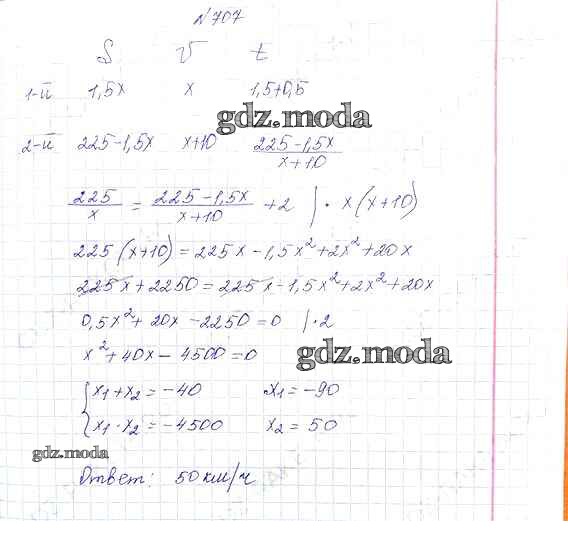 №707
S V t
1-й 1,5x x 1,5+0,5
gdz.moda
2-й 225-1,5x x+10 225-1,5x/x+10
225/x = 225-1,5x/x+10 +2 | · x(x+10)
225(x+10)=225x-1,5x²+2x²+20x
225x+2250=225x-1,5x²+2x²+20x
0,5x²+20x-2250=0 |·2
x²+40x-4500=0
gdz.moda
{x₁+x₂=-40 x₁=-90
x₁·x₂=-4500 x₂=50
gdz.moda
Ответ: 50 км/ч